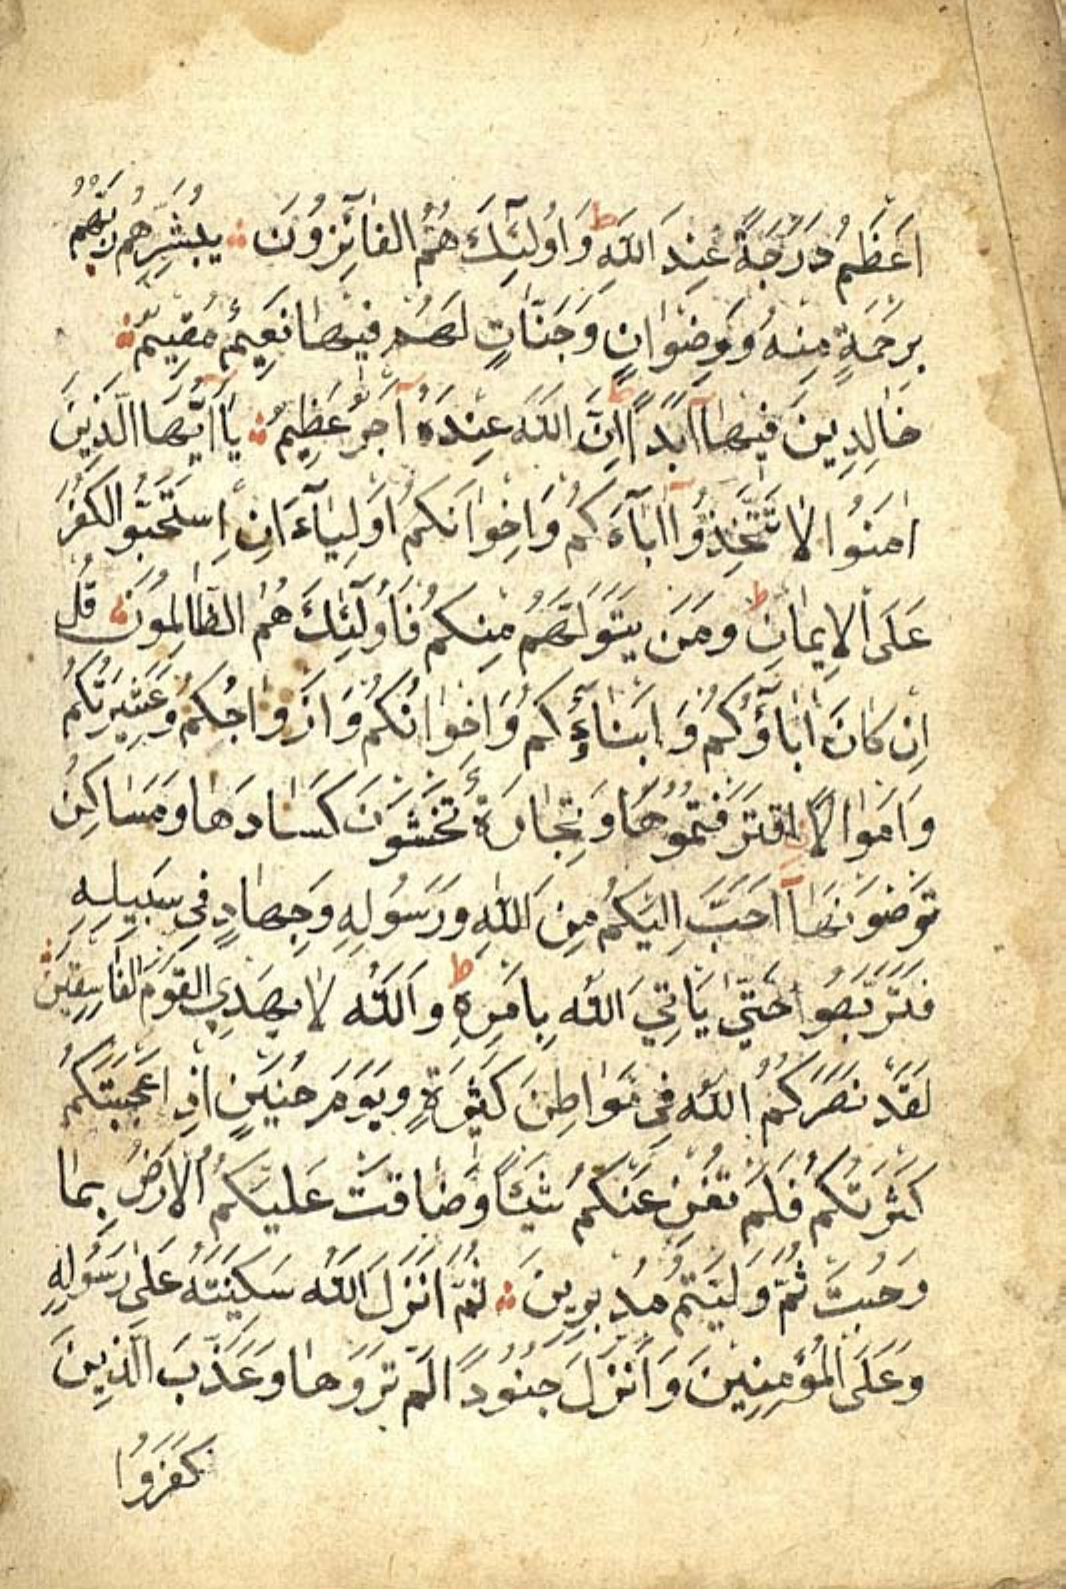 اَعْظَمُ دَرَجَةً عِنْدَ اللّٰهِ ط وَاُولٰٓئِكَ هُمُ الْفَائِزُونَ ∴ يُبَشِّرُهُمْ رَبُّهُمْ
بِرَحْمَةٍ مِنْهُ وَرِضْوَانٍ وَجَنَّاتٍ لَهُمْ فِيهَا نَعِيمٌ مُقِيمٌ ∴
خَالِدِينَ فِيهَآ اَبَدًا اِنَّ اللّٰهَ عِنْدَهُ آجْرٌ عَظِيمٌ ∴ يَآ اَيُّهَا الَّذِينَ
اٰمَنُوا لَا تَتَّخِذُوٓا اٰبَآءَكُمْ وَاِخْوَانَكُمْ اَوْلِيَآءَ اِنِ اسْتَحَبُّو الْكُفْرَ
عَلَى الْاِيمَانِ ط وَمَنْ يَتَوَلَّهُمْ مِنْكُمْ فَاُولٰٓئِكَ هُمُ الظَّالِمُونَ ∴ قُلْ
اِنْ كَانَ اٰبَآؤُكُمْ وَاَبْنَآؤُكُمْ وَاِخْوَانُكُمْ وَاَزْوَاجُكُمْ وَعَشِيرَتُكُمْ
وَاَمْوَالٌ اقْتَرَفْتُمُوهَا وَتِجَارَةٌ تَخْشَوْنَ كَسَادَهَا وَمَسَاكِنُ
تَرْضَوْنَهَآ اَحَبَّ اِلَيْكُمْ مِنَ اللّٰهِ وَرَسُولِهِ وَجِهَادٍ فِي سَبِيلِهِ
فَتَرَبَّصُوا حَتّٰى يَاْتِيَ اللّٰهُ بِاَمْرِهِ ط وَاللّٰهُ لَا يَهْدِي الْقَوْمَ الْفَاسِقِينَ ∴
لَقَدْ نَصَرَكُمُ اللّٰهُ فِي مَوَاطِنَ كَثِيرَةٍ وَيَوْمَ حُنَيْنٍ اِذْ اَعْجَبَتْكُمْ
كَثْرَتُكُمْ فَلَمْ تُغْنِ عَنْكُمْ شَيْئًا وَضَاقَتْ عَلَيْكُمُ الْاَرْضُ بِمَا
رَحُبَتْ ثُمَّ وَلَّيْتُمْ مُدْبِرِينَ ∴ ثُمَّ اَنْزَلَ اللّٰهُ سَكِينَتَهُ عَلٰى رَسُولِهِ
وَعَلَى الْمُؤْمِنِينَ وَاَنْزَلَ جُنُودًا لَمْ تَرَوْهَا وَعَذَّبَ الَّذِينَ
كَفَرُوا